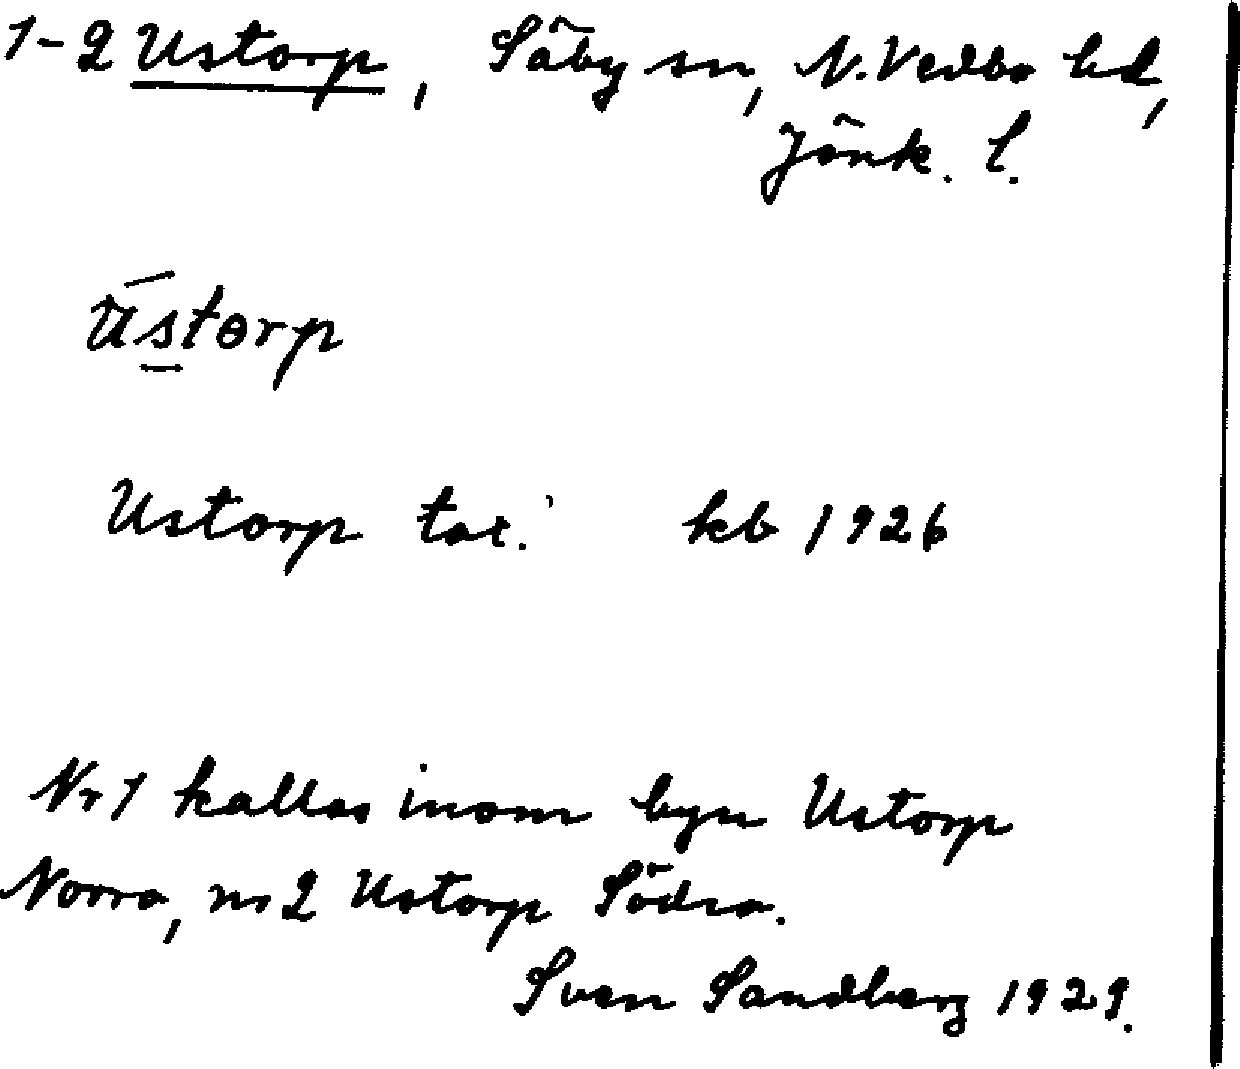 1-2 Ustorp, Säby sn, N. Vedbo hd,
Jönk. l.
ústɵrp
Ustorp tax. kb 1926
Nr 1 kallas inom byn Ustorp
Norra, nr 2 Ustorp Södra.
Sven Sandberg 1929.